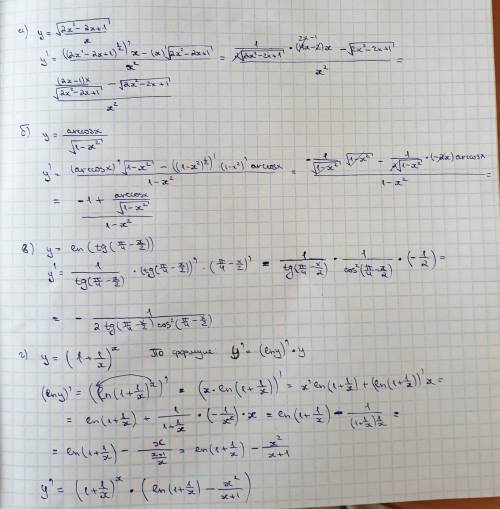 а) y = √(2x²-2x+1) / x
y' = (((2x²-2x+1)^(1/2))' x - (x)' √(2x²-2x+1)) / x² = (1/(2√(2x²-2x+1)) · (4x-2)x - √(2x²-2x+1)) / x² = 2x-1
((2x-1)x / √(2x²-2x+1) - √(2x²-2x+1)) / x²
б) y = arccosx / √(1-x²)
y' = ((arccosx)' √(1-x²) - ((1-x²)^(1/2))' (1-x²)' arccosx) / (1-x²) = (-1/√(1-x²) · √(1-x²) - 1/(2√(1-x²)) · (-2x) arccosx) / (1-x²) =
= (-1 + arccosx/√(1-x²)) / (1-x²)
в) y = ln(tg(π/4 - x/2))
y' = 1/tg(π/4 - x/2) · (tg(π/4 - x/2))' · (π/4 - x/2)' = 1/tg(π/4 - x/2) · 1/cos²(π/4 - x/2) · (-1/2) =
= - 1/(2 tg(π/4 - x/2) cos²(π/4 - x/2))
г) y = (1 + 1/x)^x По формуле y' = (lny)' · y
(lny)' = (ln(1 + 1/x)^x)' = (x · ln(1 + 1/x))' = x' ln(1 + 1/x) + (ln(1 + 1/x))' x =
= ln(1 + 1/x) + 1/(1 + 1/x) · (-1/x²) · x = ln(1 + 1/x) - 1/((1 + 1/x) 1/x) =
= ln(1 + 1/x) - x/((x+1)/x) = ln(1 + 1/x) - x²/(x+1)
y' = (1 + 1/x)^x · (ln(1 + 1/x) - x²/(x+1))